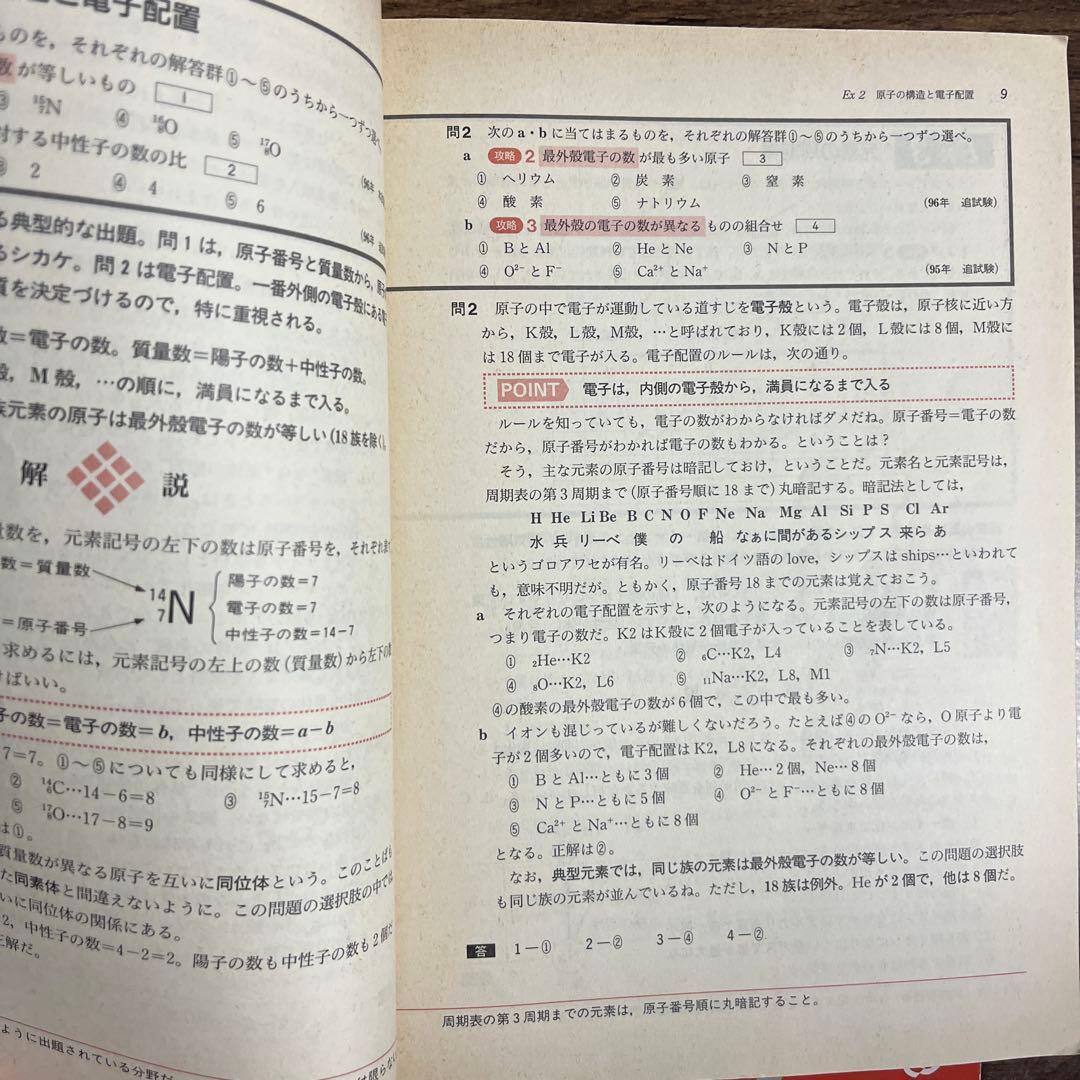 と電子配置
ものを，それぞれの解答群①～⑤のうちから一つずつ選べ。
数が等しいもの 1
③ ¹⁵₇N ④ ¹⁶₈O ⑤ ¹⁷₈O
対する中性子の数の比 2
③ 2 ④ 4 ⑤ 6 (96年
る典型的な出題。問1は，原子番号と質量数から，
るシカケ。問2は電子配置。一番外側の電子殻にある
質を決定づけるので，特に重視される。
数＝電子の数。質量数＝陽子の数＋中性子の数。
殻，M殻，…の順に，満員になるまで入る。
族元素の原子は最外殻電子の数が等しい(18族を除く)。
解 説
量数を，元素記号の左下の数は原子番号を，それぞれ
数＝質量数
¹⁴₇N
＝原子番号
陽子の数＝7
電子の数＝7
中性子の数＝14－7
求めるには，元素記号の左上の数(質量数)から左下の
けばいい。
子の数＝電子の数＝b，中性子の数＝a－b
7＝7。①～⑤についても同様にして求めると，
② ¹⁴₆C…14－6＝8 ③ ¹⁵₇N…15－7＝8
⑤ ¹⁷₈O…17－8＝9
は①。
質量数が異なる原子を互いに同位体という。このことばも
た同素体と間違えないように。この問題の選択肢の中では
いに同位体の関係にある。
2，中性子の数＝4－2＝2。陽子の数も中性子の数も2個だ
正解だ。
ように出題されている分野だ
は限らない
Ex 2 原子の構造と電子配置 9
問2 次のa・bに当てはまるものを，それぞれの解答群①～⑤のうちから一つずつ選べ。
a 攻略 2 最外殻電子の数が最も多い原子 3
① ヘリウム ② 炭 素 ③ 窒 素
④ 酸 素 ⑤ ナトリウム (96年 追試験)
b 攻略 3 最外殻の電子の数が異なるものの組合せ 4
① BとAl ② HeとNe ③ NとP
④ O²⁻とF⁻ ⑤ Ca²⁺とNa⁺ (95年 追試験)
問2 原子の中で電子が運動している道すじを電子殻という。電子殻は，原子核に近い方
から，K殻，L殻，M殻，…と呼ばれており，K殻には2個，L殻には8個，M殻に
は18個まで電子が入る。電子配置のルールは，次の通り。
POINT 電子は，内側の電子殻から，満員になるまで入る
ルールを知っていても，電子の数がわからなければダメだね。原子番号＝電子の数
だから，原子番号がわかれば電子の数もわかる。ということは？
そう，主な元素の原子番号は暗記しておけ，ということだ。元素名と元素記号は，
周期表の第3周期まで(原子番号順に18まで)丸暗記する。暗記法としては，
H He Li Be B C N O F Ne Na Mg Al Si P S Cl Ar
水 兵 リーベ 僕 の 船 なぁに間があるシップス 来ら あ
というゴロアワセが有名。リーベはドイツ語のlove，シップスはships…といわれて
も，意味不明だが。ともかく，原子番号18までの元素は覚えておこう。
a それぞれの電子配置を示すと，次のようになる。元素記号の左下の数は原子番号，
つまり電子の数だ。K2はK殻に2個電子が入っていることを表している。
① ₂He…K2 ② ₆C…K2，L4 ③ ₇N…K2，L5
④ ₈O…K2，L6 ⑤ ₁₁Na…K2，L8，M1
④の酸素の最外殻電子の数が6個で，この中で最も多い。
b イオンも混じっているが難しくないだろう。たとえば④のO²⁻なら，O原子より電
子が2個多いので，電子配置はK2，L8になる。それぞれの最外殻電子の数は，
① BとAl…ともに3個 ② He…2個，Ne…8個
③ NとP…ともに5個 ④ O²⁻とF⁻…ともに8個
⑤ Ca²⁺とNa⁺…ともに8個
となる。正解は②。
なお，典型元素では，同じ族の元素は最外殻電子の数が等しい。この問題の選択肢
も同じ族の元素が並んでいるね。ただし，18族は例外。Heが2個で，他は8個だ。
答 1－① 2－② 3－④ 4－②
周期表の第3周期までの元素は，原子番号順に丸暗記すること。